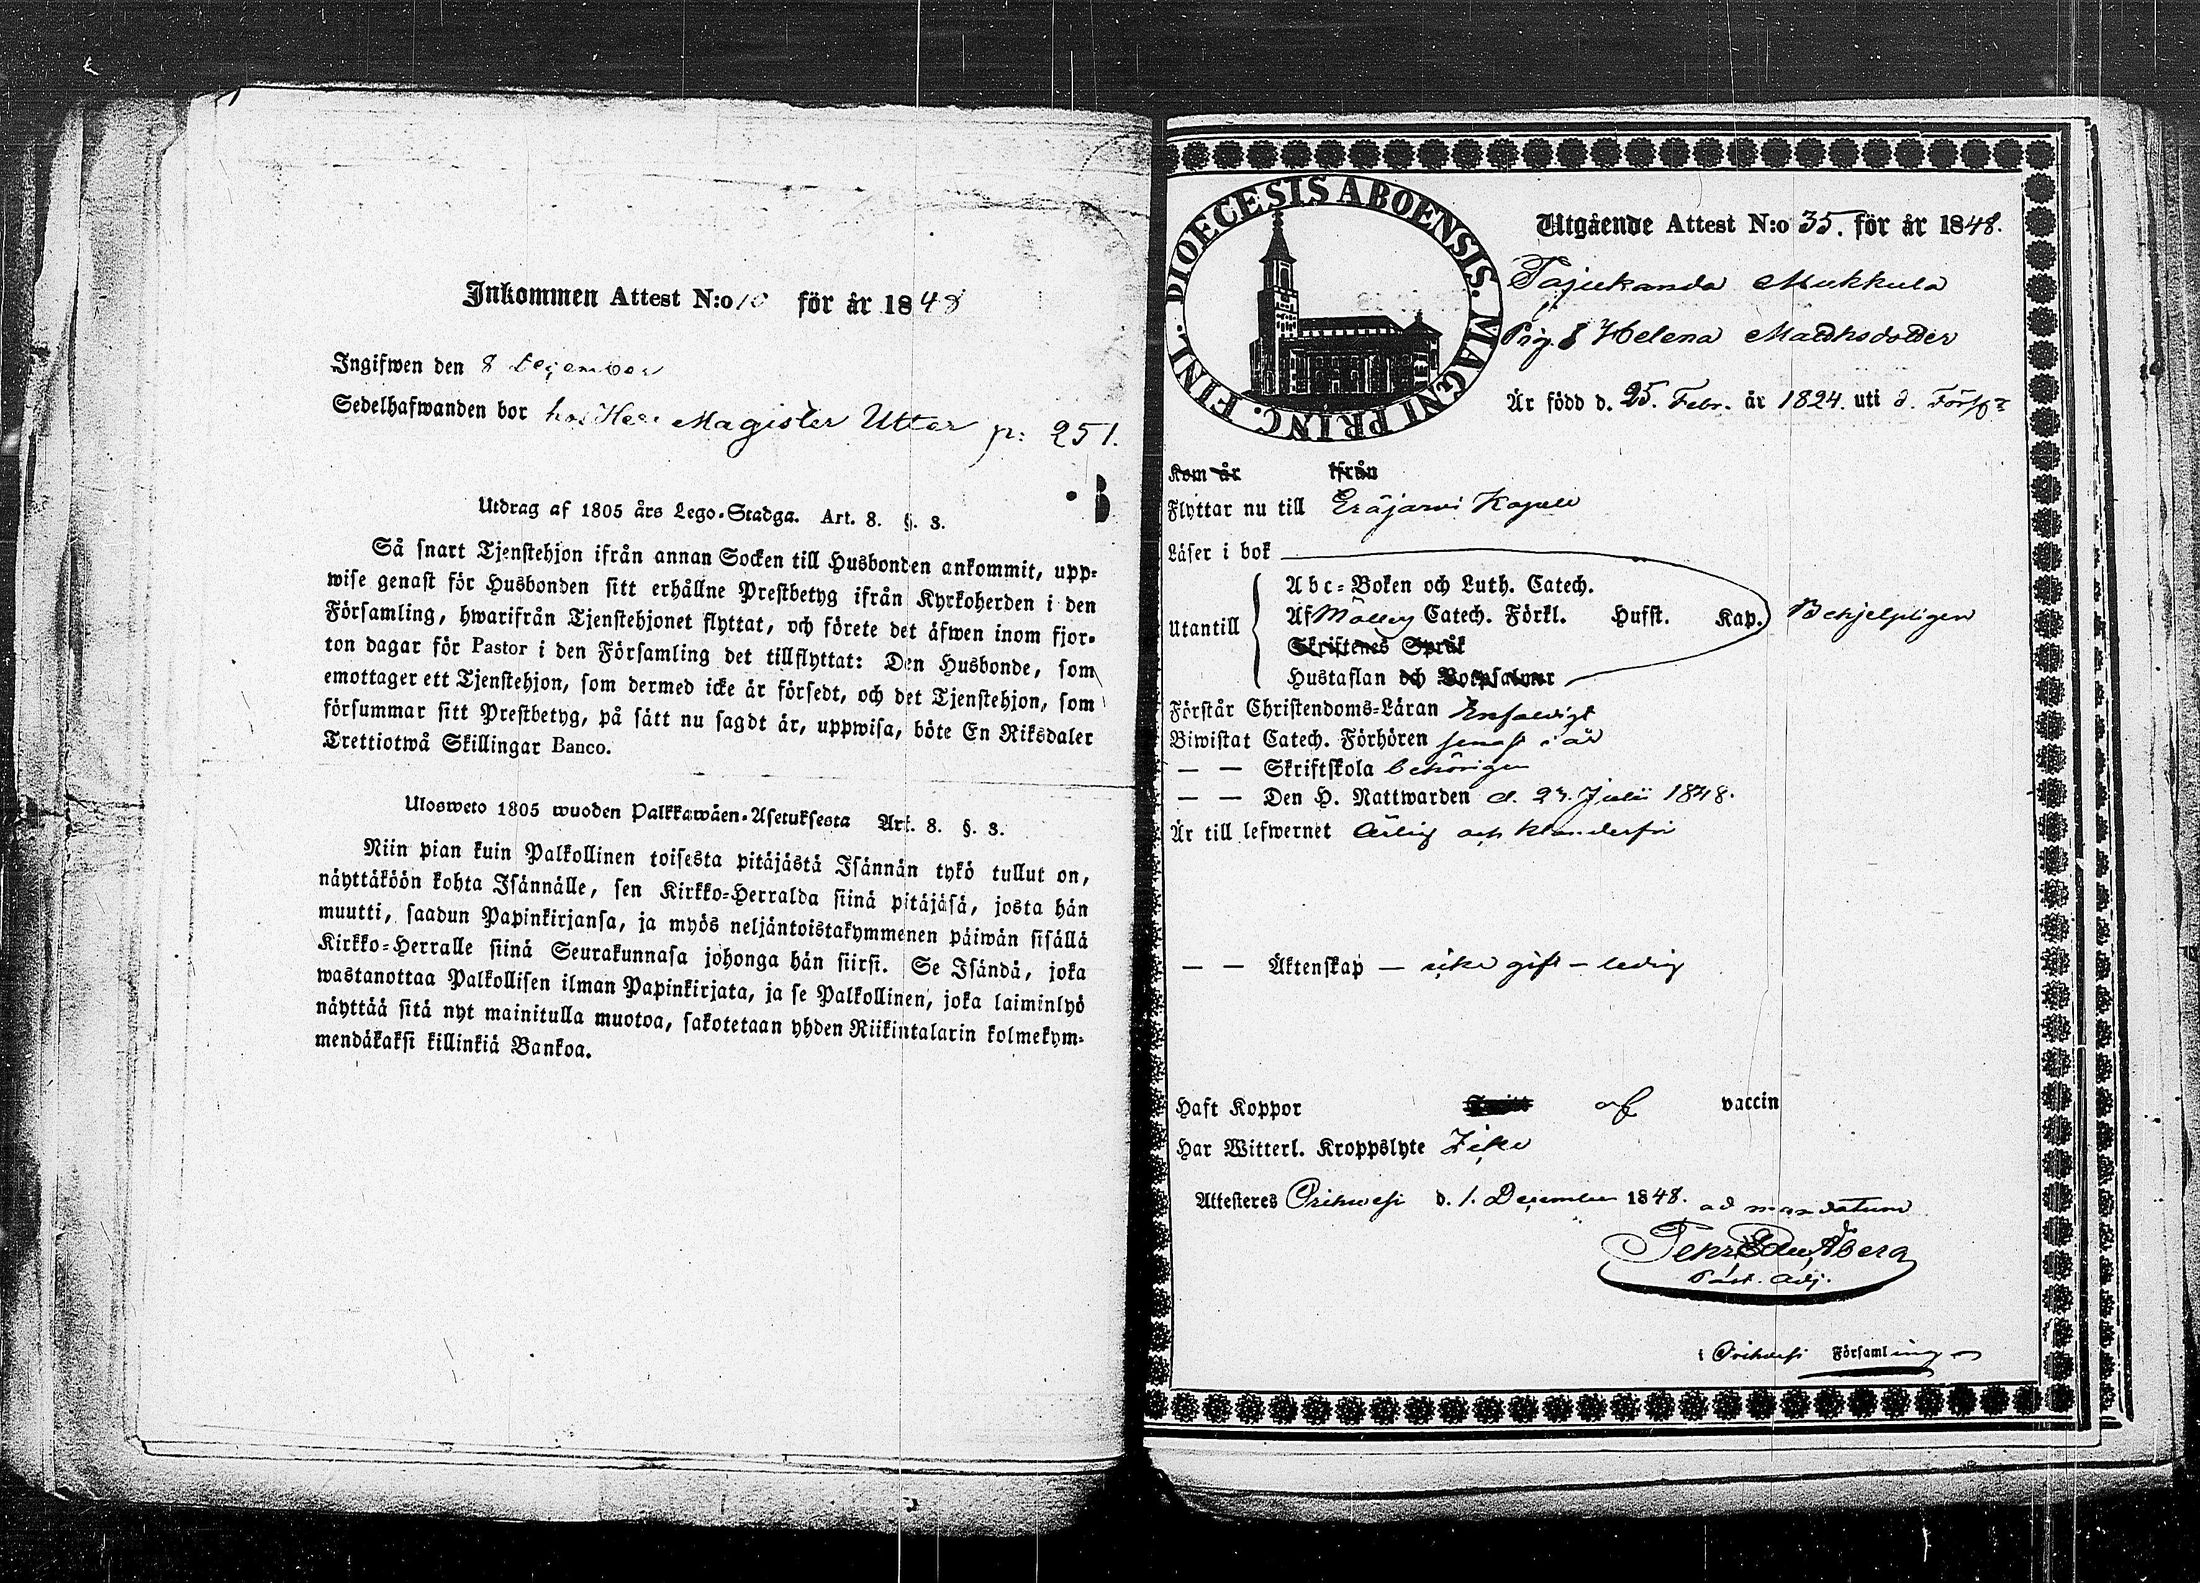 Inkommen Attest N:o 10 för år 1848
Ingifwen den 8 December
Sedelhafwanden bor hos Herr Magister Utter p: 251.
Utdrag af 1805 års Lego-Stadga. Art. 8. §. 3.
Så snart Tjenstehjon ifrån annan Socken till Husbonden ankommit, upp-
wise genast för Husbonden sitt erhållne Prestbetyg ifrån Kyrkoherden i den
Församling, hwarifrån Tjenstehjonet flyttat, och förete det äfwen inom fjor-
ton dagar för Pastor i den Församling det tillflyttat: Den Husbonde, som
emottager ett Tjenstehjon, som dermed icke är försedt, och det Tjenstehjon, som
försummar sitt Prestbetyg, på sätt nu sagdt är, uppwisa, böte En Riksdaler
Trettiotwå Skillingar Banco.
Ulosweto 1805 wuoden Palkkawäen-Asetuksesta Art. 8. §. 3.
Niin pian kuin Palkollinen toisesta pitäjästä Isännän tykö tullut on,
näyttäköön kohta Isännälle, sen Kirkko-Herralda siinä pitäjäsä, josta hän
muutti, saadun Papinkirjansa, ja myös neljäntoistakymmenen päiwän sisällä
Kirkko-Herralle siinä Seurakunnasa johonga hän siirsi. Se Isändä, joka
wastanottaa Palkollisen ilman Papinkirjata, ja se Palkollinen, joka laiminlyö
näyttää sitä nyt mainitulla muotoa, sakotetaan yhden Riikintalarin kolmekym-
mendäkaksi killinkiä Bankoa.
DIOECESIS ABOENSIS. MAGNI PRINC. FINL.
Utgående Attest N:o 35. för år 1848.
Mukkula
Pig. Helena
Är född d. 25. Febr. år 1824. uti d. Förs.
Kom år ifrån
Flyttar nu till Eräjärvi Kapell
Läser i bok
Utantill
Abc-Boken och Luth. Catech.
Af Möllers Catech. Förkl. Hufst. Kap.
Behjelpligen
Skriftenes Språk
Hustaflan och Botpsalmer
Förstår Christendoms-Läran Enfaldigt
Biwistat Catech. Förhören senast i år
— — Skriftskola behörigen
— — Den H. Nattwarden d. Julii 1848.
Är till lefwernet Ärlig och klanderfri
— — Äktenskap — icke gift — ledig
Haft Koppor af vaccin
Har Witterl. Kroppslyte Icke
Attesteres Orihvesi d. 1. December 1848. ad mandatum
Åberg
Past. Adj.
i Orihvesi Församling